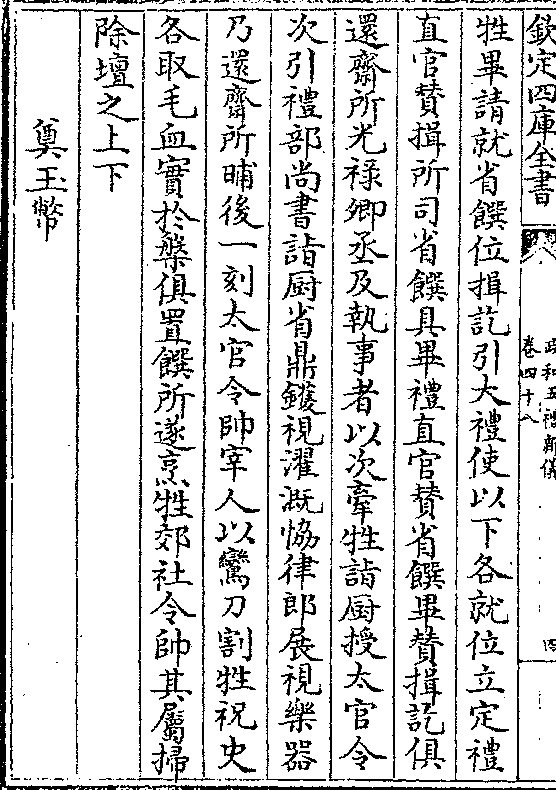 欽定四庫全書
政和五禮新儀
卷四十八
四
牲畢請就省饌位揖訖引大禮使以下各就位立定禮
直官贊揖所司省饌具畢禮直官贊省饌畢贊揖訖俱
還齋所光祿卿丞及執事者以次牽牲詣厨授太官令
次引禮部尚書詣厨省鼎鑊視濯溉恊律郎展視樂器
乃還齋所晡後一刻太官令帥宰人以鸞刀割牲祝史
各取毛血實於槃俱置饌所遂烹牲郊社令帥其屬掃
除壇之上下
奠玉幣